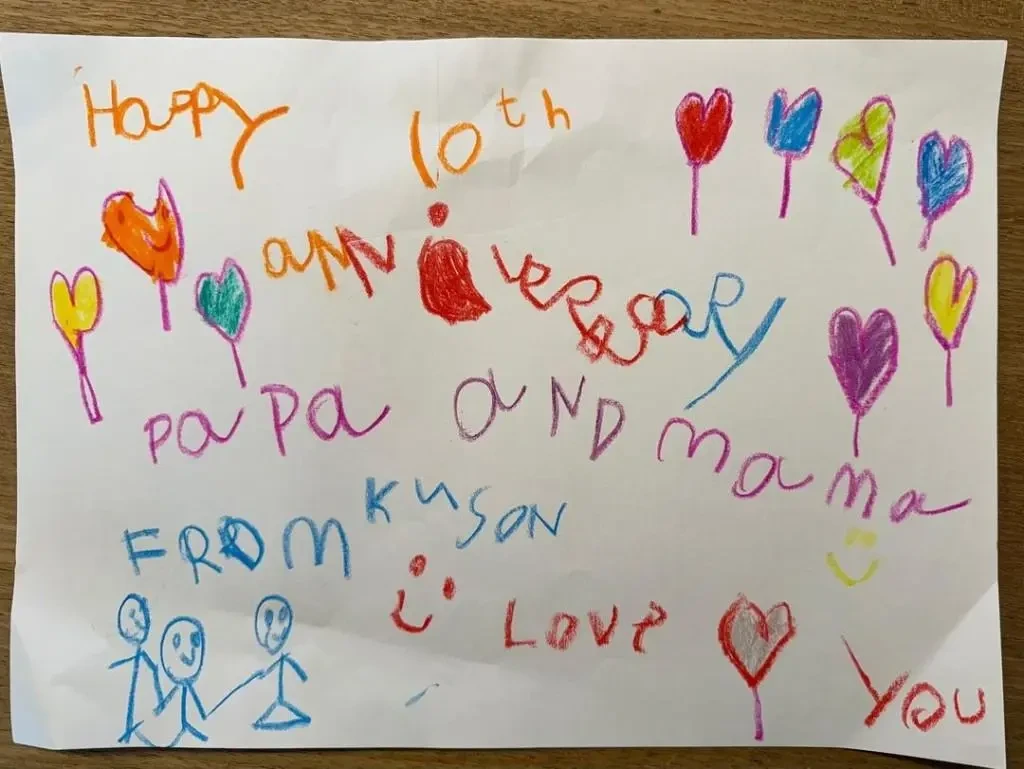 Happy 10th
anniverSary
PaPa aND mama
FROM KUSON
LOVe YOU